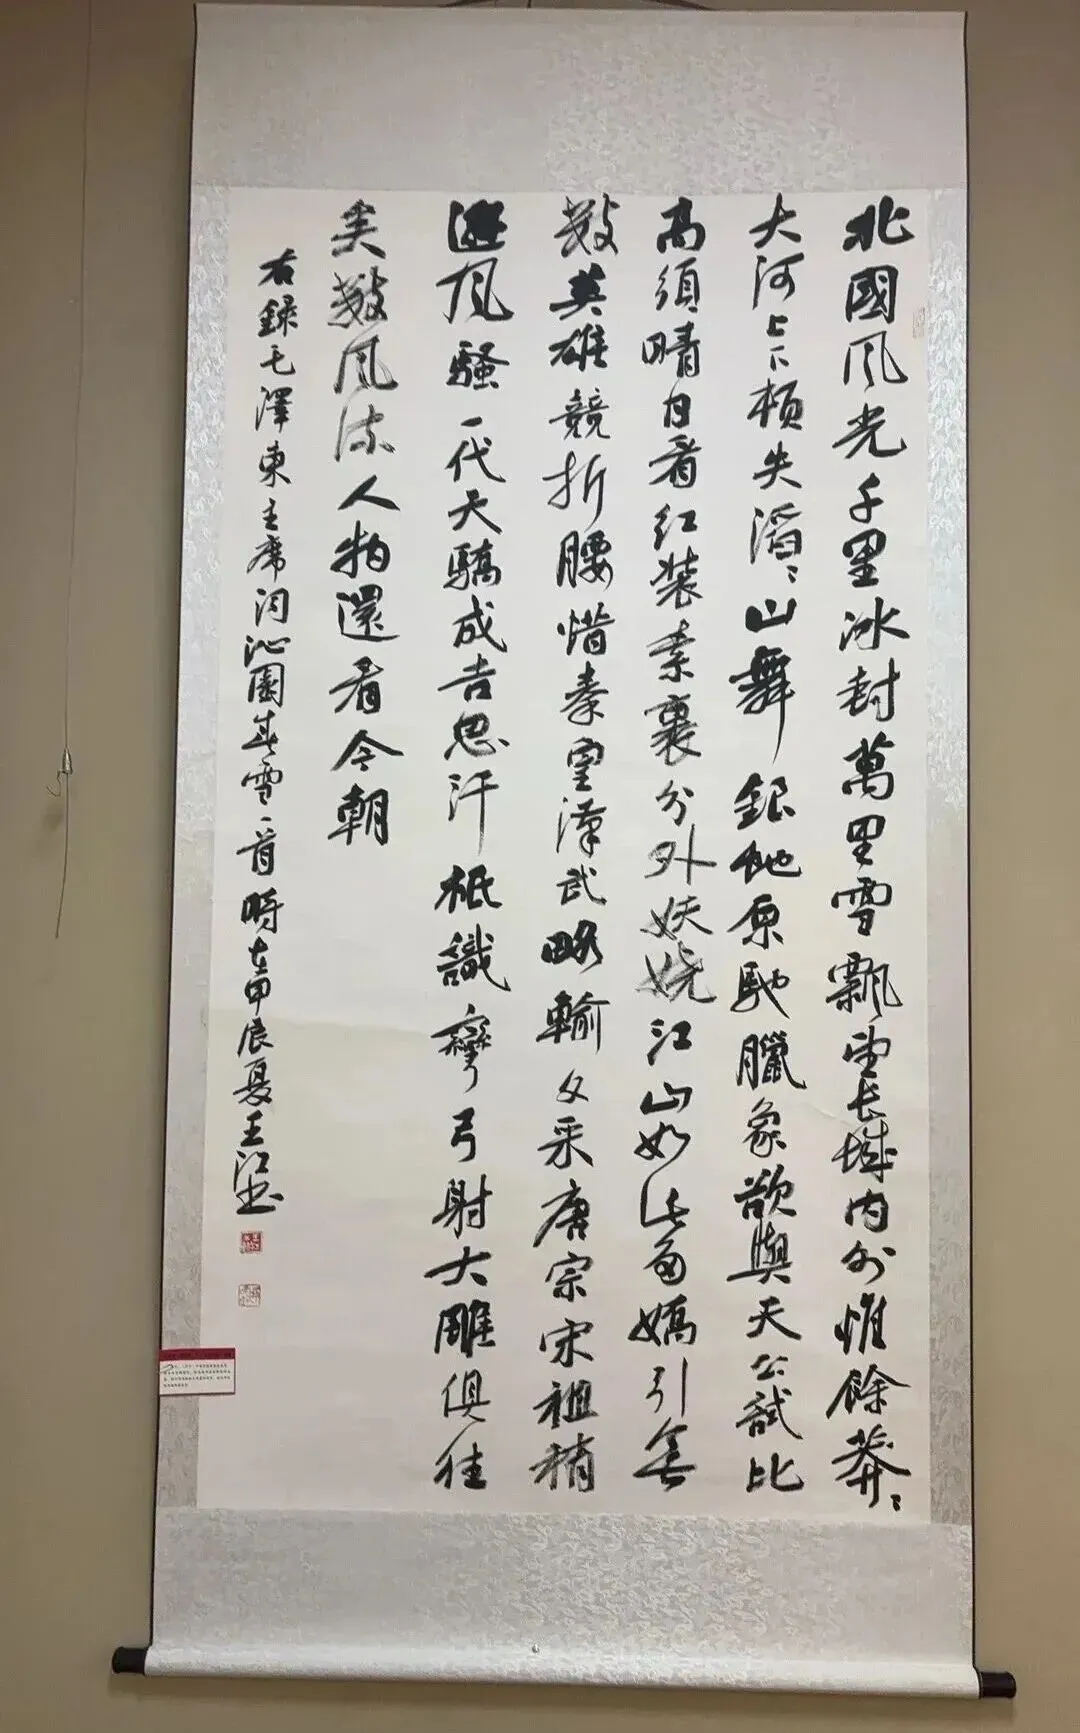 北國风光千里冰封萬里雪飄望长城内外惟餘莽〻
大河上下頓失滔〻山舞銀蛇原馳臘象欲與天公試比
高須晴日看红装素裹分外妖娆江山如此多嬌引無
數英雄競折腰惜秦皇漢武略輸文采唐宗宋祖稍
遜风騷一代天驕成吉思汗祇識彎弓射大雕俱往
矣數风流人物還看今朝
右録毛澤東主席词沁園春雪一首時在甲辰夏王江书